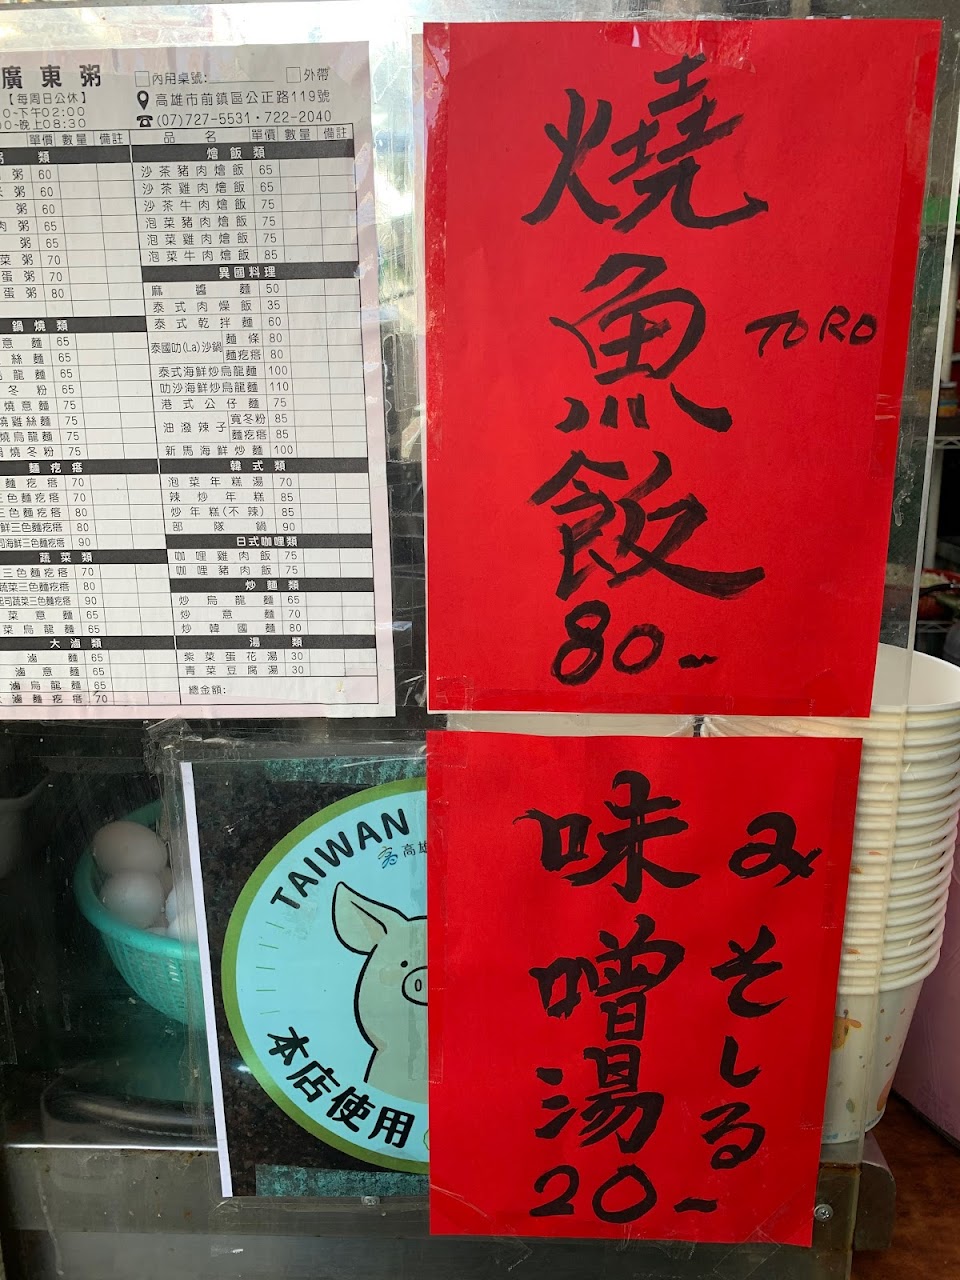 廣東粥
【每周日公休】
0~下午02:00
00~晚上08:30
內用桌號: 外帶
高雄市前鎮區公正路119號
(07)727-5531・722-2040
單價 數量 備註
類
粥 60
粥 60
粥 60
肉粥 65
粥 65
菜粥 70
蛋粥 70
蛋粥 80
鍋燒類
意麵 65
絲麵 65
烏龍麵 65
冬粉 65
燒意麵 75
燒雞絲麵 75
燒烏龍麵 75
鍋燒冬粉 75
麵疙瘩
麵疙瘩 70
三色麵疙瘩 70
三色麵疙瘩 80
鮮三色麵疙瘩 80
司海鮮三色麵疙瘩 90
蔬菜類
三色麵疙瘩 70
蔬菜三色麵疙瘩 80
起司蔬菜三色麵疙瘩 90
菜意麵 65
菜烏龍麵 65
大滷類
滷麵 65
滷意麵 65
滷烏龍麵 65
滷麵疙瘩 70
品名 單價 數量 備註
燴飯類
沙茶豬肉燴飯 65
沙茶雞肉燴飯 65
沙茶牛肉燴飯 75
泡菜豬肉燴飯 75
泡菜雞肉燴飯 75
泡菜牛肉燴飯 85
異國料理
麻醬麵 50
泰式肉燥飯 35
泰式乾拌麵 60
泰國叻(La)沙鍋 麵條 80
麵疙瘩 80
泰式海鮮炒烏龍麵 100
叻沙海鮮炒烏龍麵 110
港式公仔麵 75
油潑辣子 寬冬粉 85
麵疙瘩 85
新馬海鮮炒麵 100
韓式類
泡菜年糕湯 70
辣炒年糕 85
炒年糕(不辣) 85
部隊鍋 90
日式咖哩類
咖哩雞肉飯 75
咖哩豬肉飯 75
炒麵類
炒烏龍麵 65
炒意麵 70
炒韓國麵 80
湯類
紫菜蛋花湯 30
青菜豆腐湯 30
總金額:
燒魚飯
TORO
80-
味噌湯
みそしる
20-
TAIWAN
高雄
本店使用